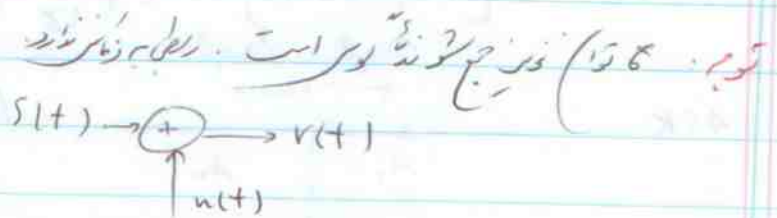 توجه: توان نویز جمع شونده گوسی است. ربطی به زمان ندارد.
S(t) → + → r(t)
n(t)